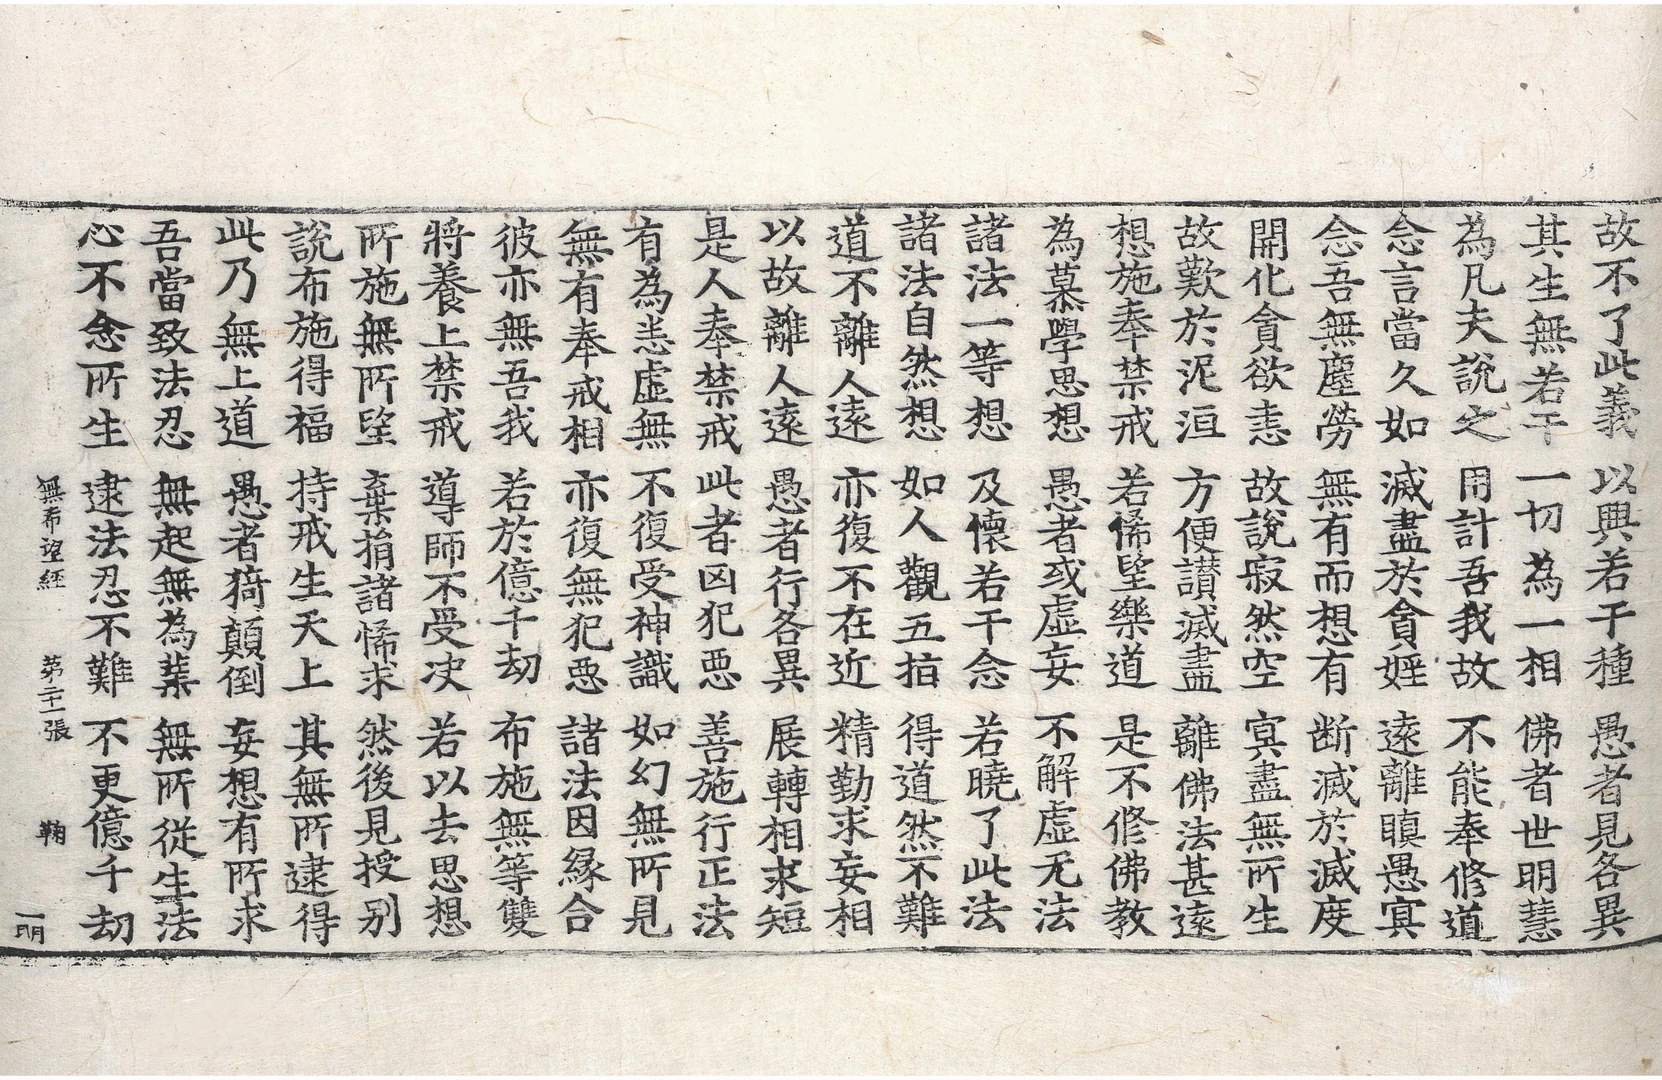 故不了此義 以興若干種 愚者見各異
其生無若干 一切為一相 佛者世明慧
為凡夫說之 用計吾我故 不能奉修道
念言當久如 滅盡於貪婬 遠離瞋愚㝠
念吾無塵勞 無有而想有 断滅於滅度
開化貪欲恚 故說寂然空 㝠盡無所生
故歎於泥洹 方便讃滅盡 離佛法甚遠
想施奉禁戒 若悕望樂道 是不修佛教
為慕學思想 愚者或虛妄 不解虛无法
諸法一等想 及懷若干念 若曉了此法
諸法自然想 如人觀五指 得道然不難
道不離人遠 亦復不在近 精勤求妄相
以故離人遠 愚者行各異 展轉相求短
是人奉禁戒 此者凶犯惡 善施行正法
有為恚虛無 不復受神識 如幻無所見
無有奉戒相 亦復無犯惡 諸法因緣合
彼亦無吾我 若於億千劫 布施無等雙
將養上禁戒 導師不受决 若以去思想
所施無所望 棄捐諸悕求 然後見授别
說布施得福 持戒生天上 其無所逮得
此乃無上道 愚者猗顛倒 妄想有所求
吾當致法忍 無起無為業 無所從生法
心不念所生 逮法忍不難 不更億千劫
無希望經 第二十一張 鞠 一明